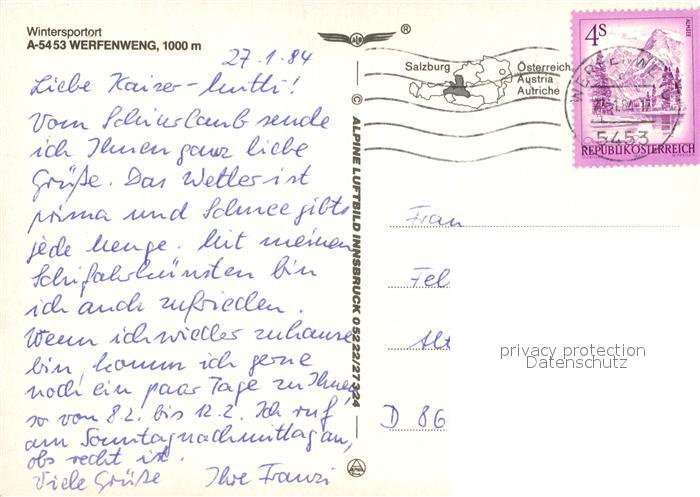 Wintersportort
A-5453 WERFENWENG, 1000 m
27.1.84
Liebe Kaiser-Mutti!
Vom Schiurlaub sende
ich Ihnen ganz liebe
Grüße. Das Wetter ist
prima und Schnee gibts
jede Menge. Mit meinen
Schifahrkünsten bin
ich auch zufrieden.
Wenn ich wieder zuhause
bin, komm ich gerne
noch ein paar Tage zu Ihnen
so von 8.2. bis 12.2. Ich ruf
am Sonntagnachmittag an,
obs recht ist.
Viele Grüße Ihre Franzi
© ALPINE LUFTBILD INNSBRUCK 05222/27324
®
Salzburg
Österreich
Austria
Autriche
4S
ALMSEE
REPUBLIK ÖSTERREICH
WERFENWENG
27.-1.84-17
5453
Frau
Fel
Alt
D 86
privacy protection
Datenschutz